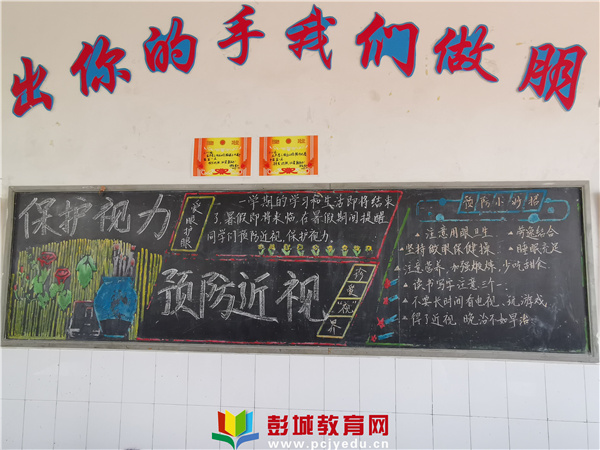 出你的手我们做朋
保护视力
爱眼护眼
一学期的学习和生活即将结束
了,暑假即将来临,在暑假期间提醒
同学们预防近视,保护视力。
预防近视
预防小妙招
注意用眼卫生
劳逸结合
坚持做眼保健操
睡眠充足
注意营养,加强锻炼,少吃甜食
读书写字注意三个一
不要长时间看电视、玩游戏
得了近视 晚治不如早治
彭城教育网
www.pcjyedu.cn